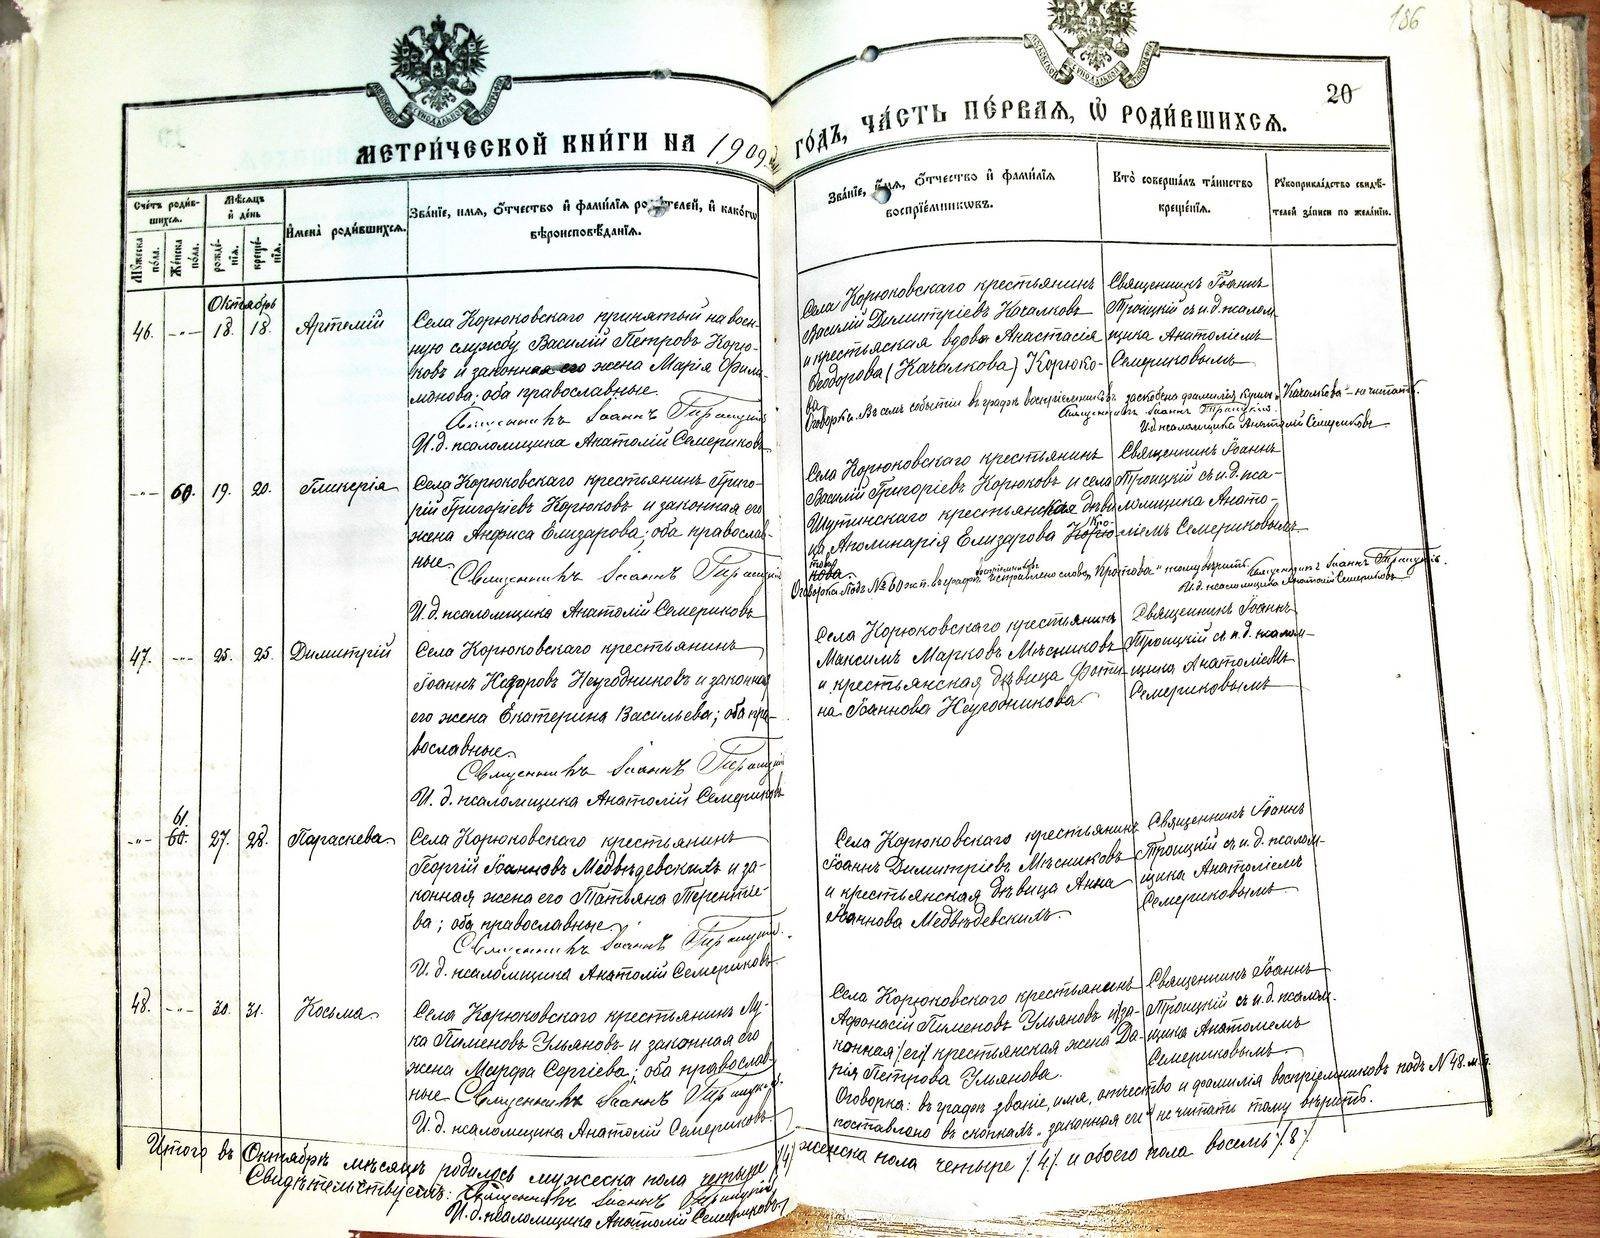 186
20
МЕТРИ́ЧЕСКОЙ КНИ́ГИ НА 1909 й ГО́ДЪ, ЧА́СТЬ ПЕ́РВАЯ, Ѿ РОДИ́ВШИХСЯ.
Счетъ роди́в-
шихся.
Мужеска по́ла.
Же́нска по́ла.
Мѣсяцъ
и де́нь
рожде́-
нїя.
креще́-
нїя.
И҆мена̀ роди́вшихся.
Зва́нїе, имя, ѻ҆́тчество и҆ фами́лїя роди́телей, и҆ како́гѡ
вѣроисповѣ́данїя.
Зва́нїе, и҆́мя, ѻ҆́тчество и҆ фами́лїя
воспрїе́мникѡвъ.
Кто̀ соверша́лъ та́инство
креще́нїя.
Рꙋкоприкла́дство свидѣ́-
телей за́писи по жела́нїю.
Октябрь
46.
-"-
18.
18.
Артемій
Села Корюковскаго принятый на воен-
ную службу Василій Петровъ Корю-
ковъ и законная его жена Марія Фили-
монова; оба православные.
Священникъ Іоаннъ Троицкій
И. д. псаломщика Анатолій Семериковъ
Села Корюковскаго крестьянинъ
Василій Димитріевъ Качалковъ
и крестьяская вдова Анастасія
Ѳеодорова (Качалкова) Корюко-
ва
Священникъ Іоаннъ
Троицкій съ и. д. псалом
щика Анатоліемъ
Семериковымъ
Оговорка. Въ семъ событіи въ графѣ воспріемниковъ заскобена фамилія "Качалкова" - не читать.
Священникъ Іоаннъ Троицкій.
И. д. псаломщика Анатолій Семериковъ
-"-
60.
19.
20.
Гликерія
Села Корюковскаго крестьянинъ Григо-
рій Григоріевъ Корюковъ и законная его
жена Анфиса Елизарова; оба православ-
ные.
Священникъ Іоаннъ Троицкій
И. д. псаломщика Анатолій Семериковъ
Села Корюковскаго крестьянинъ
Василій Григоріевъ Корюковъ и села
Шутинскаго крестьянская дѣви
ца Аполинарія Елизарова Корю Кро-
това
кова.
Священникъ Іоаннъ
Троицкій съ и. д. пса-
ломщика Анато-
ліемъ Семериковымъ
Оговорка. Подъ № 60 ж.п. въ графѣ воспріемниковъ исправлено слово "Кротова" тому вѣрить. Священникъ Іоаннъ Троицкій.
И. д. псаломщика Анатолій Семериковъ
47.
-"-
25.
25.
Димитрій
Села Корюковскаго крестьянинъ
Іоаннъ Назаровъ Неугодниковъ и законная
его жена Екатерина Васильева; оба пра-
вославные
Священникъ Іоаннъ Троицкій
И. д. псаломщика Анатолій Семериковъ
Села Корюковскаго крестьянинъ
Максимъ Марковъ Мѣсниковъ
и крестьянская дѣвица Фоти-
на Іоаннова Неугодникова
Священникъ Іоаннъ
Троицкій съ и. д. псалом-
щика Анатоліемъ
Семериковымъ
-"-
61.
60.
27.
28.
Параскева
Села Корюковскаго крестьянинъ
Георгій Іоанновъ Медвѣдевскихъ и за-
конная жена его Татьяна Терентіе-
ва; оба православные.
Священникъ Іоаннъ Троицкій.
И. д. псаломщика Анатолій Семериковъ
Села Корюковскаго крестьянинъ
Іоаннъ Димитріевъ Мѣсниковъ
и крестьянская дѣвица Анна
Іоаннова Медвѣдевскихъ.
Священникъ Іоаннъ
Троицкій съ и. д. псалом-
щика Анатоліемъ
Семериковымъ
48.
-"-
30.
31.
Косьма
Села Корюковскаго крестьянинъ Лу-
ка Пименовъ Ульяновъ и законная его
жена Марѳа Сергіева; оба православ-
ные Священникъ Іоаннъ Троицкій.
И. д. псаломщика Анатолій Семериковъ.
Села Корюковскаго крестьянинъ
Афонасій Пименовъ Ульяновъ и /за-
конная/ его/ крестьянская жена Да-
рія Петрова Ульянова.
Священникъ Іоаннъ
Троицкій съ и. д. псалом.
щика Анатоліемъ
Семериковымъ.
Оговорка: въ графѣ званіе, имя, отчество и фамилія воспріемниковъ подъ № 48 м.п.
поставлено въ скопкахъ "законная его" не читать тому вѣрить.
Итого въ Октябрѣ мѣсяцѣ родилось мужеска пола четыре /4/ женска пола четыре /4/. и обоего пола восемь /8/.
Свидѣтельствуемъ: Священникъ Іоаннъ Троицкій,
И. д. псаломщика Анатолій Семериковъ